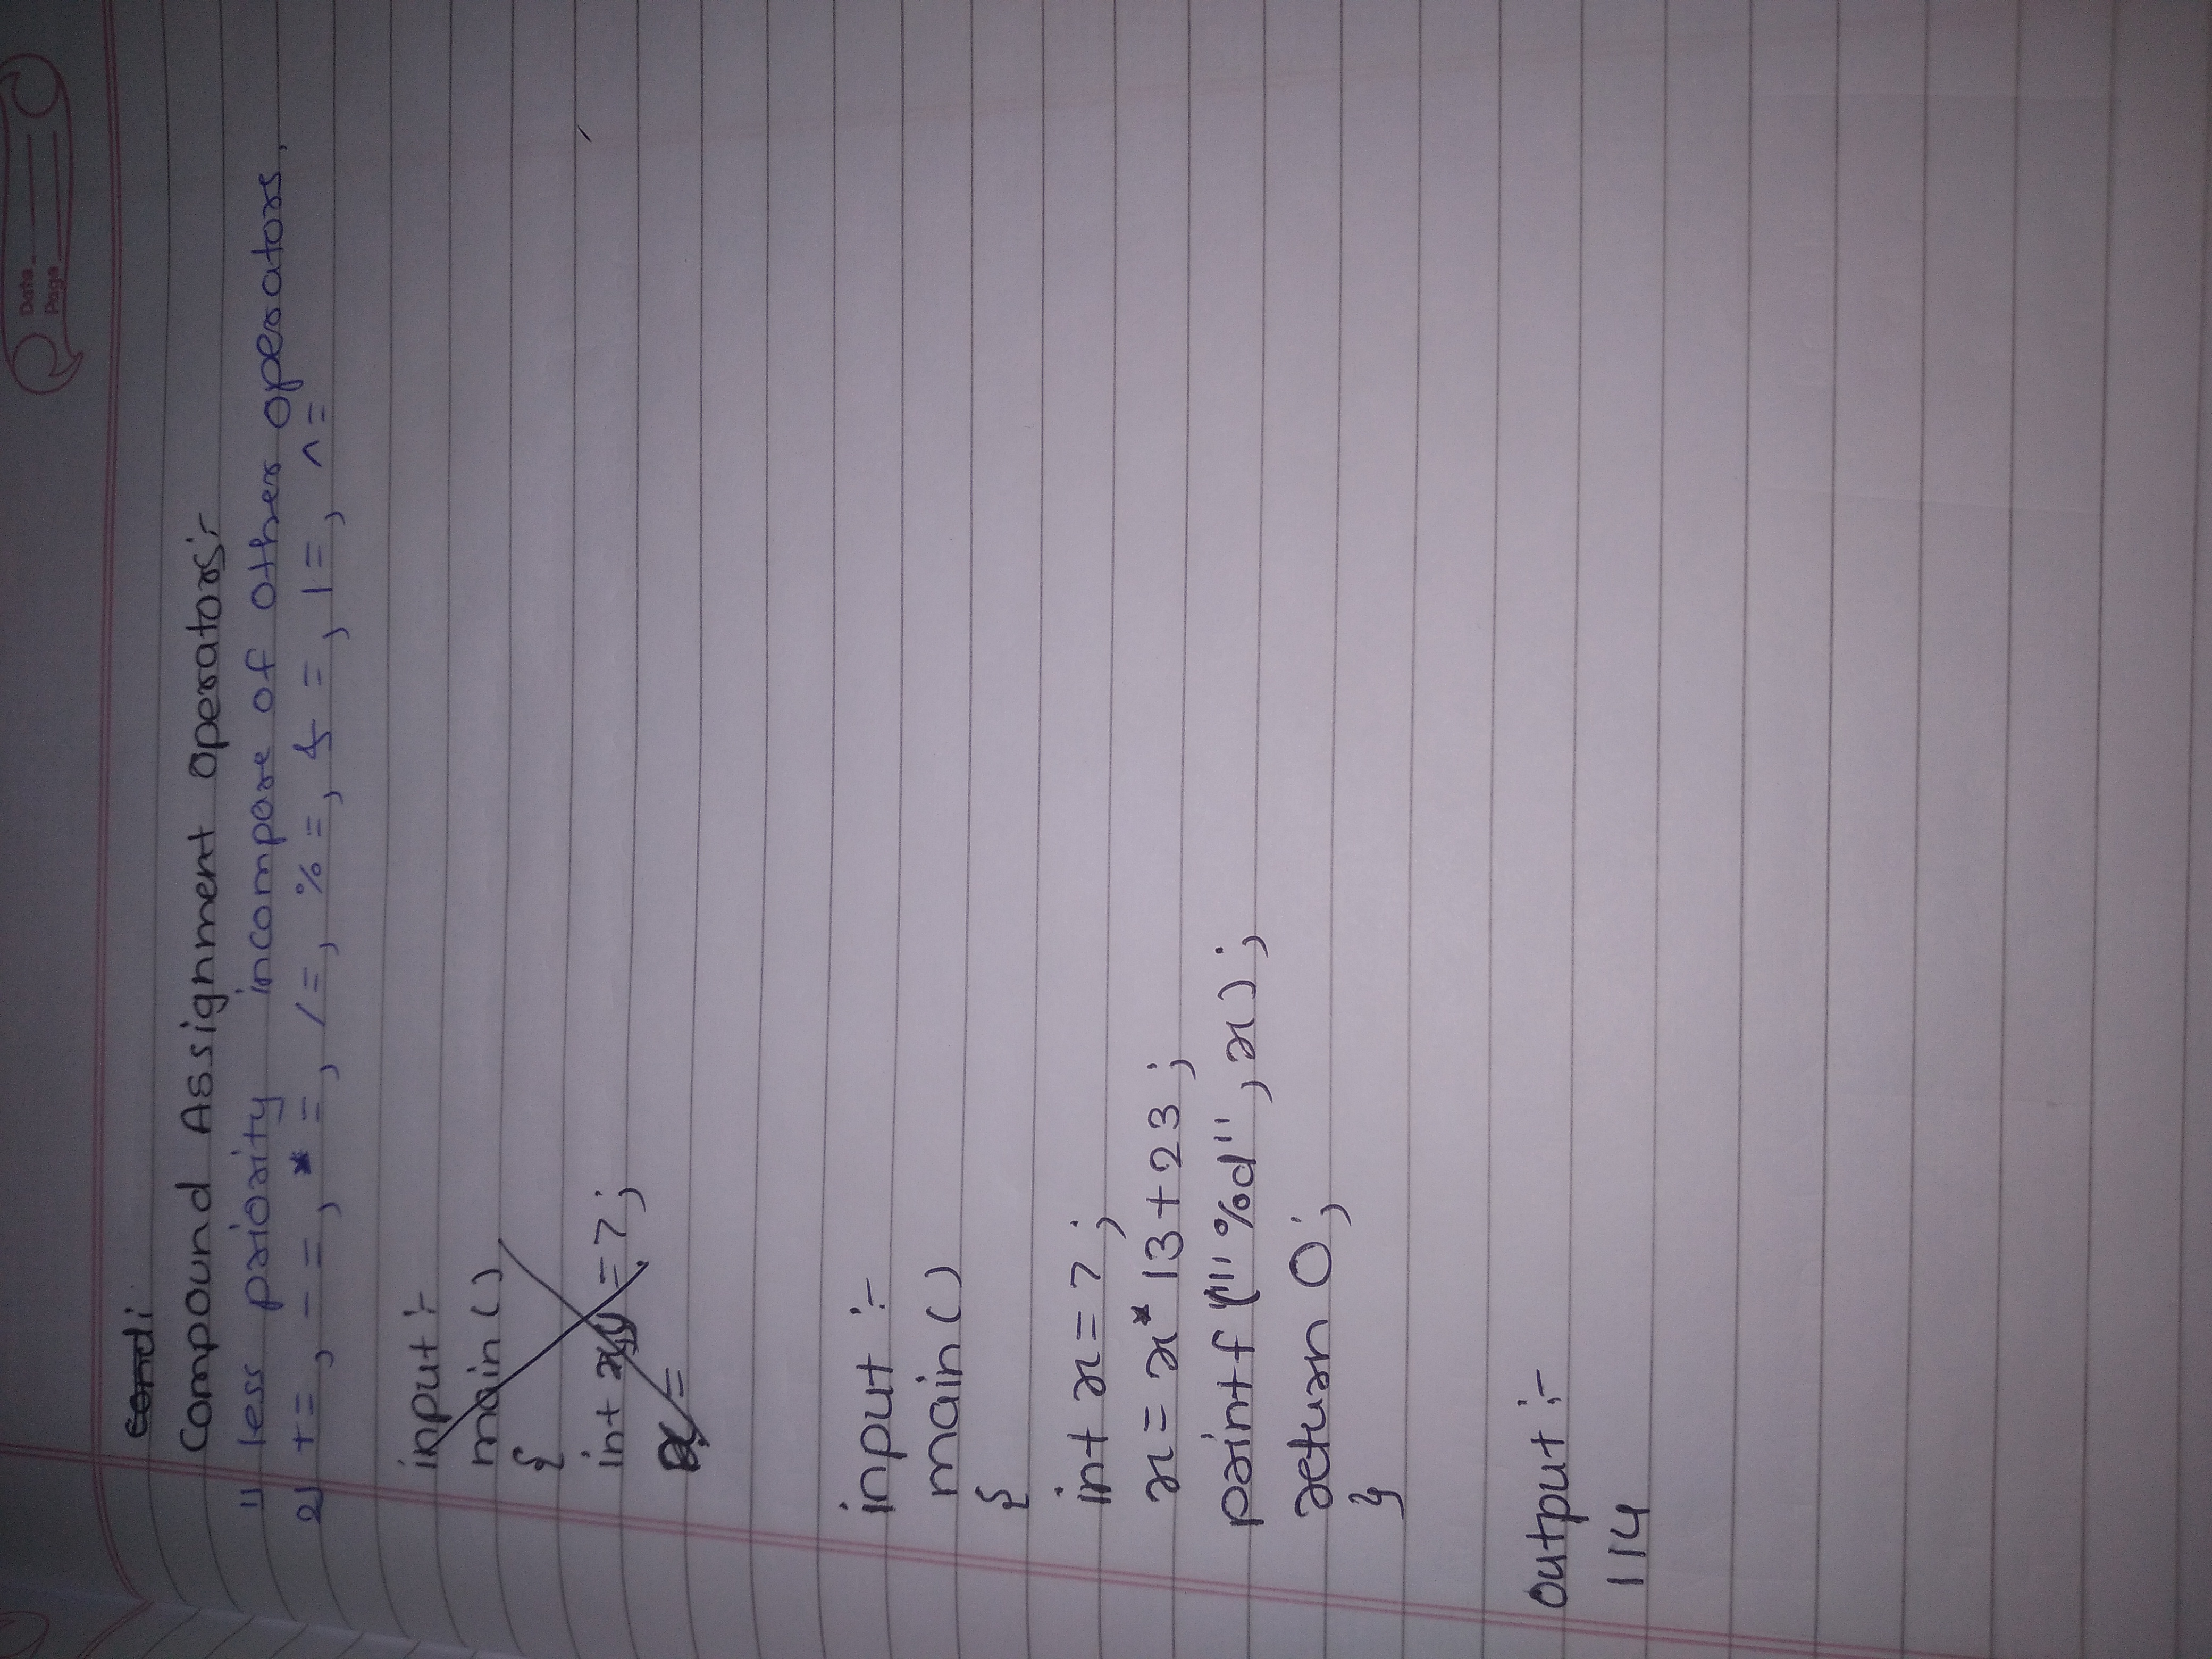 Date
Page
condi
Compound Assignment operators:-
1) less priority incompare of other operators.
2) +=, -=, *=, /=, %=, &=, |=, ^=
input :-
main()
{
int x,y=7;
x=
input :-
main()
{
int x=7;
x=x*13+23;
printf("%d",x);
return 0;
}
output :-
114